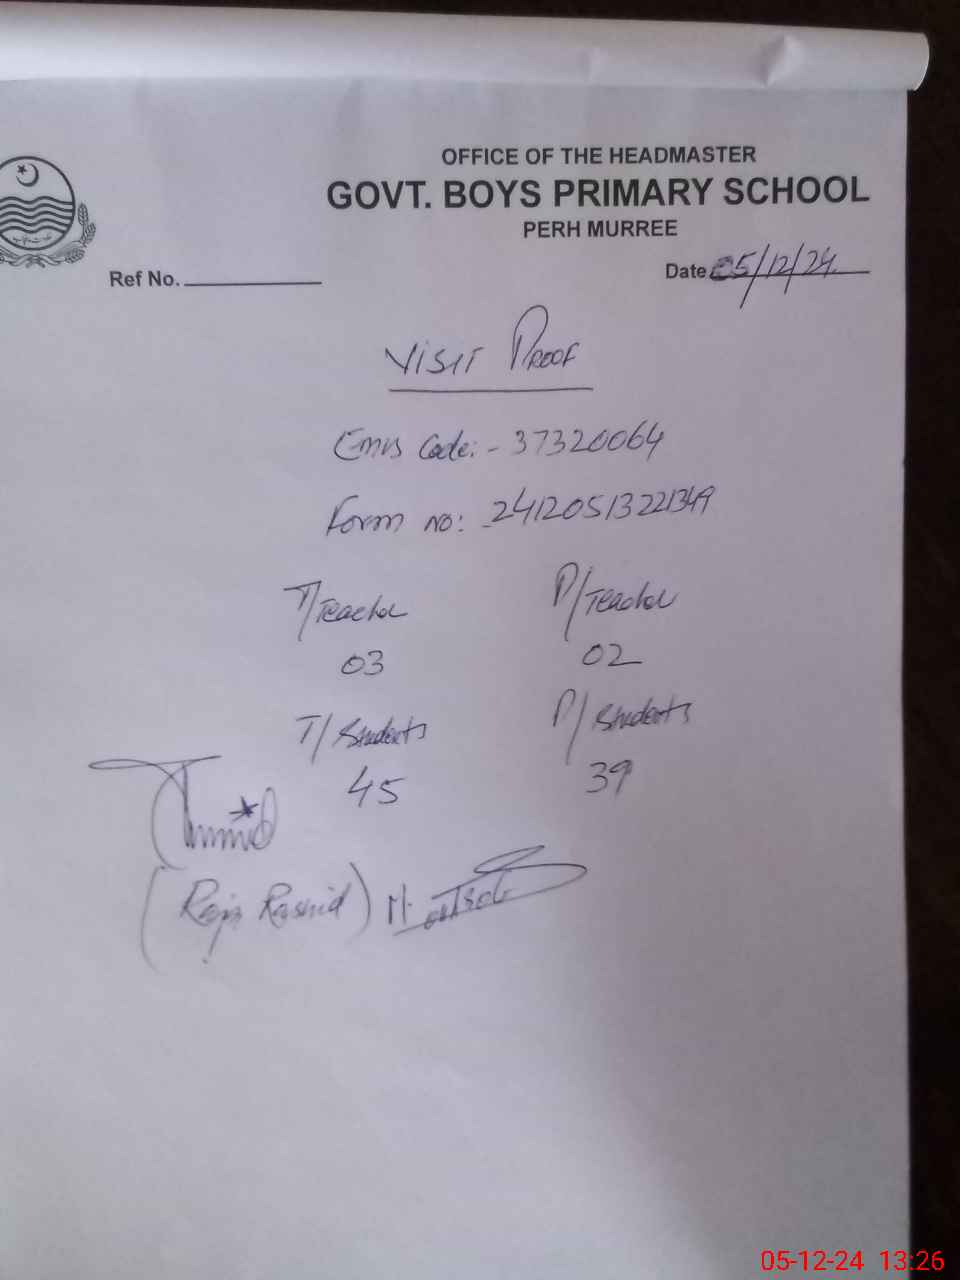 OFFICE OF THE HEADMASTER
GOVT. BOYS PRIMARY SCHOOL
PERH MURREE
Ref No.
Date 05/12/24
VISIT PROOF
Emis Code:- 37320064
Form no:- 24120513221349
T/Teacher P/Teacher
03 02
T/Students P/Students
45 39
(Raja Rashid) M.
05-12-24 13:26